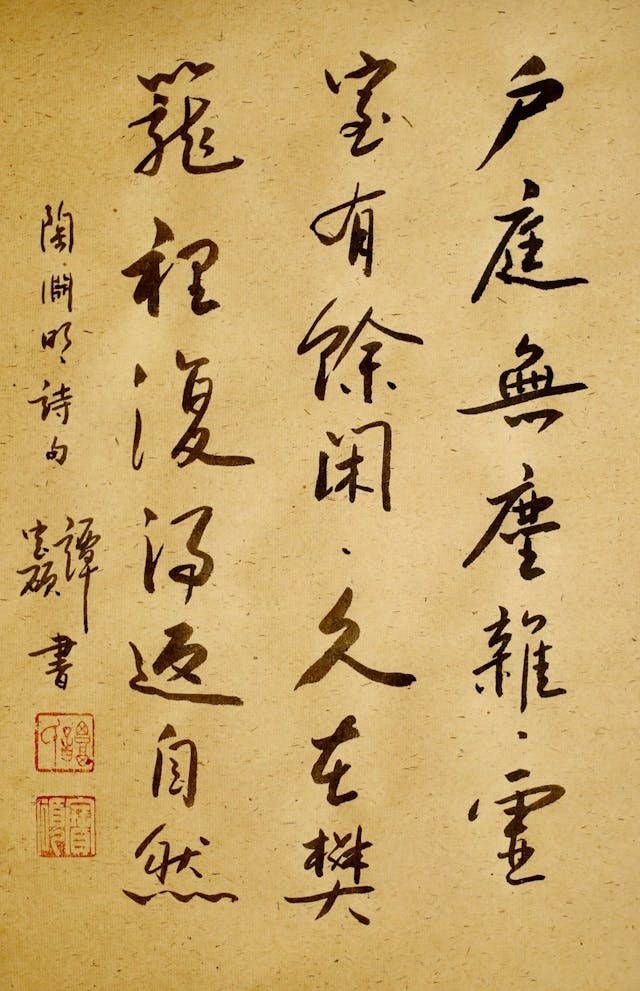 户庭無塵雜、虚
室有餘閑、久在樊
籠裡復得返自然
陶淵明詩句 譚碩書